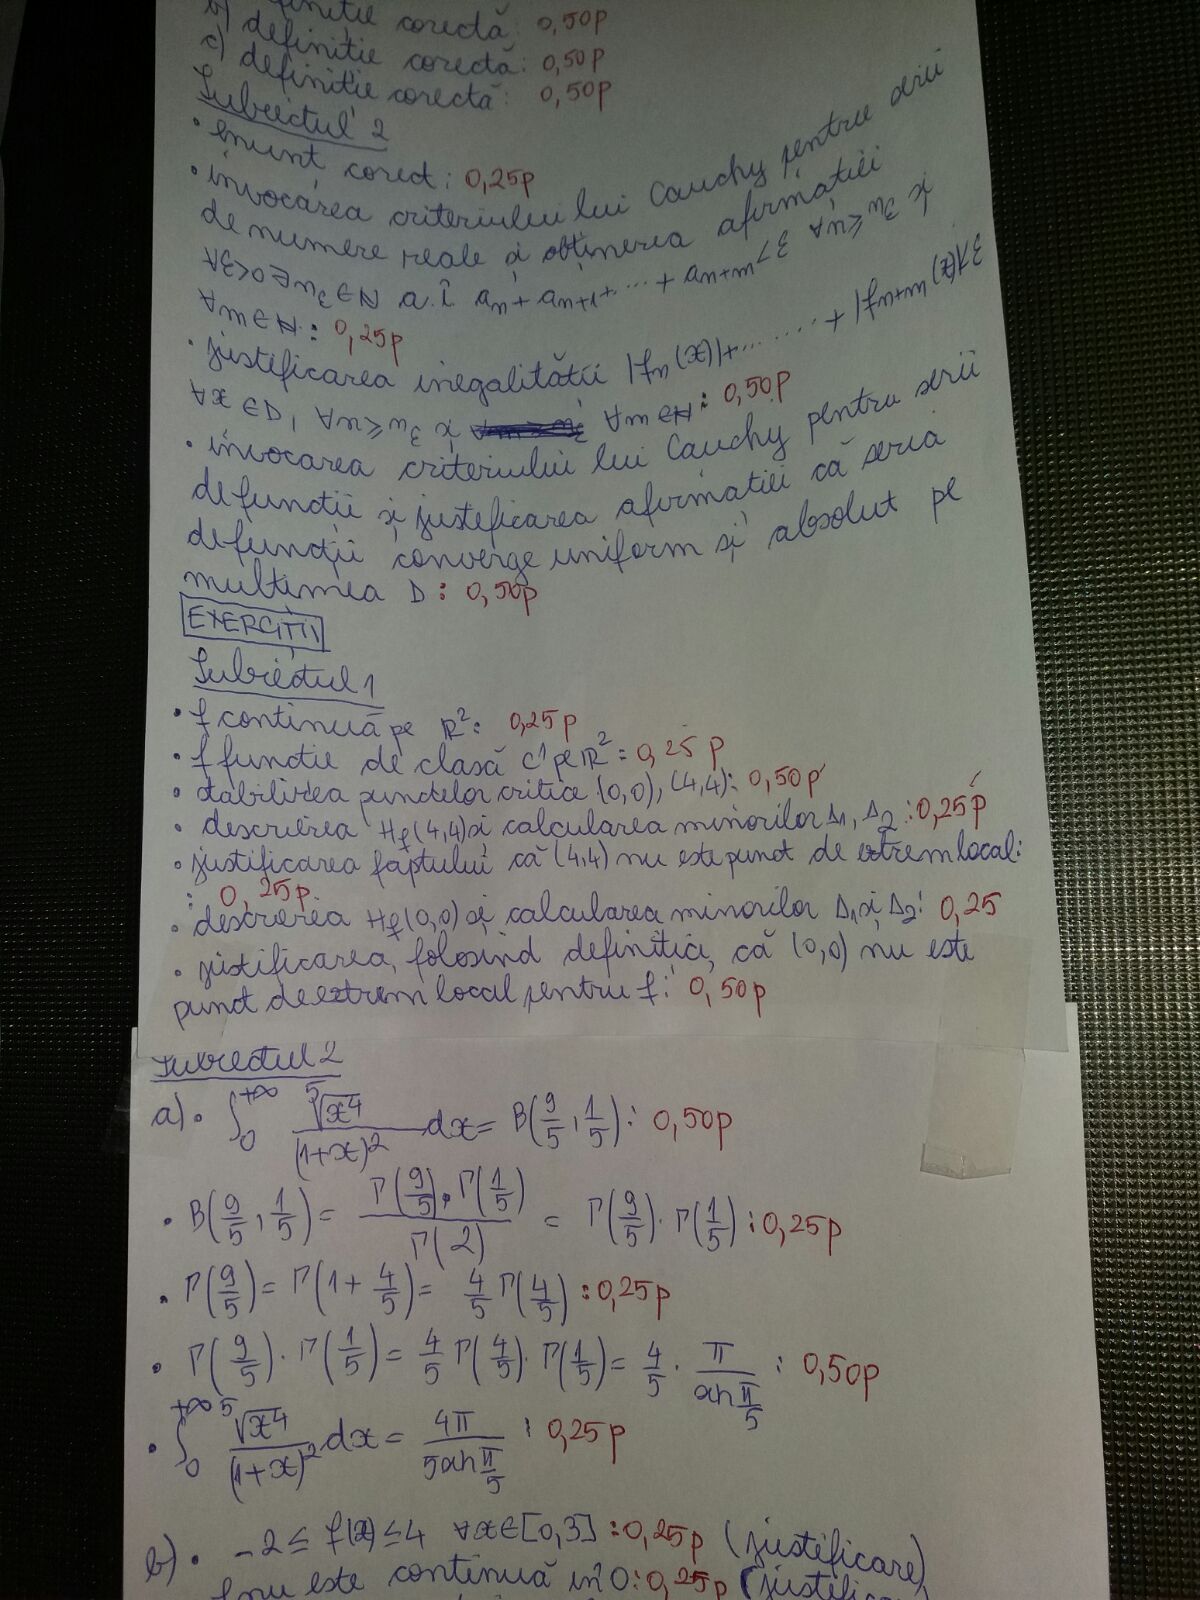 b) definiție corectă: 0,50p
c) definiție corectă: 0,50p
definiție corectă: 0,50p
Subiectul 2
• enunț corect: 0,25p
• invocarea criteriului lui Cauchy pentru serii
de numere reale și obținerea afirmației
∀ε>0 ∃nε∈ℕ a.î. an + an+1 + ... + an+m < ε ∀n≥nε și
∀m∈ℕ: 0,25p
• justificarea inegalității |fn(x)|+......+|fn+m(x)|<ε
∀x∈D, ∀n≥nε și ∀m∈ℕ: 0,50p
• invocarea criteriului lui Cauchy pentru serii
de funcții și justificarea afirmației că seria
de funcții converge uniform și absolut pe
mulțimea D: 0,50p
EXERCIȚII
Subiectul 1
• f continuă pe ℝ²: 0,25p
• f funcție de clasă C¹ pe ℝ²: 0,25p
• stabilirea punctelor critice (0,0), (4,4): 0,50p
• descrierea Hf(4,4) și calcularea minorilor Δ1, Δ2: 0,25p
• justificarea faptului că (4,4) nu este punct de extrem local:
: 0,25p
• descrierea Hf(0,0) și calcularea minorilor Δ1 și Δ2: 0,25
• justificarea, folosind definiția, că (0,0) nu este
punct de extrem local pentru f: 0,50p
Subiectul 2
a) • ∫₀^{+∞} ⁵√x⁴/(1+x)² dx = B(9/5, 1/5): 0,50p
• B(9/5, 1/5) = Γ(9/5)·Γ(1/5)/Γ(2) = Γ(9/5)·Γ(1/5): 0,25p
• Γ(9/5) = Γ(1+4/5) = 4/5 Γ(4/5): 0,25p
• Γ(9/5)·Γ(1/5) = 4/5 Γ(4/5)·Γ(1/5) = 4/5 · π/sin π/5: 0,50p
• ∫₀^{+∞} ⁵√x⁴/(1+x)² dx = 4π/5sin π/5: 0,25p
b) • -2 ≤ f(x) ≤ 4 ∀x∈[0,3]: 0,25p (justificare)
f nu este continuă în 0: 0,25p